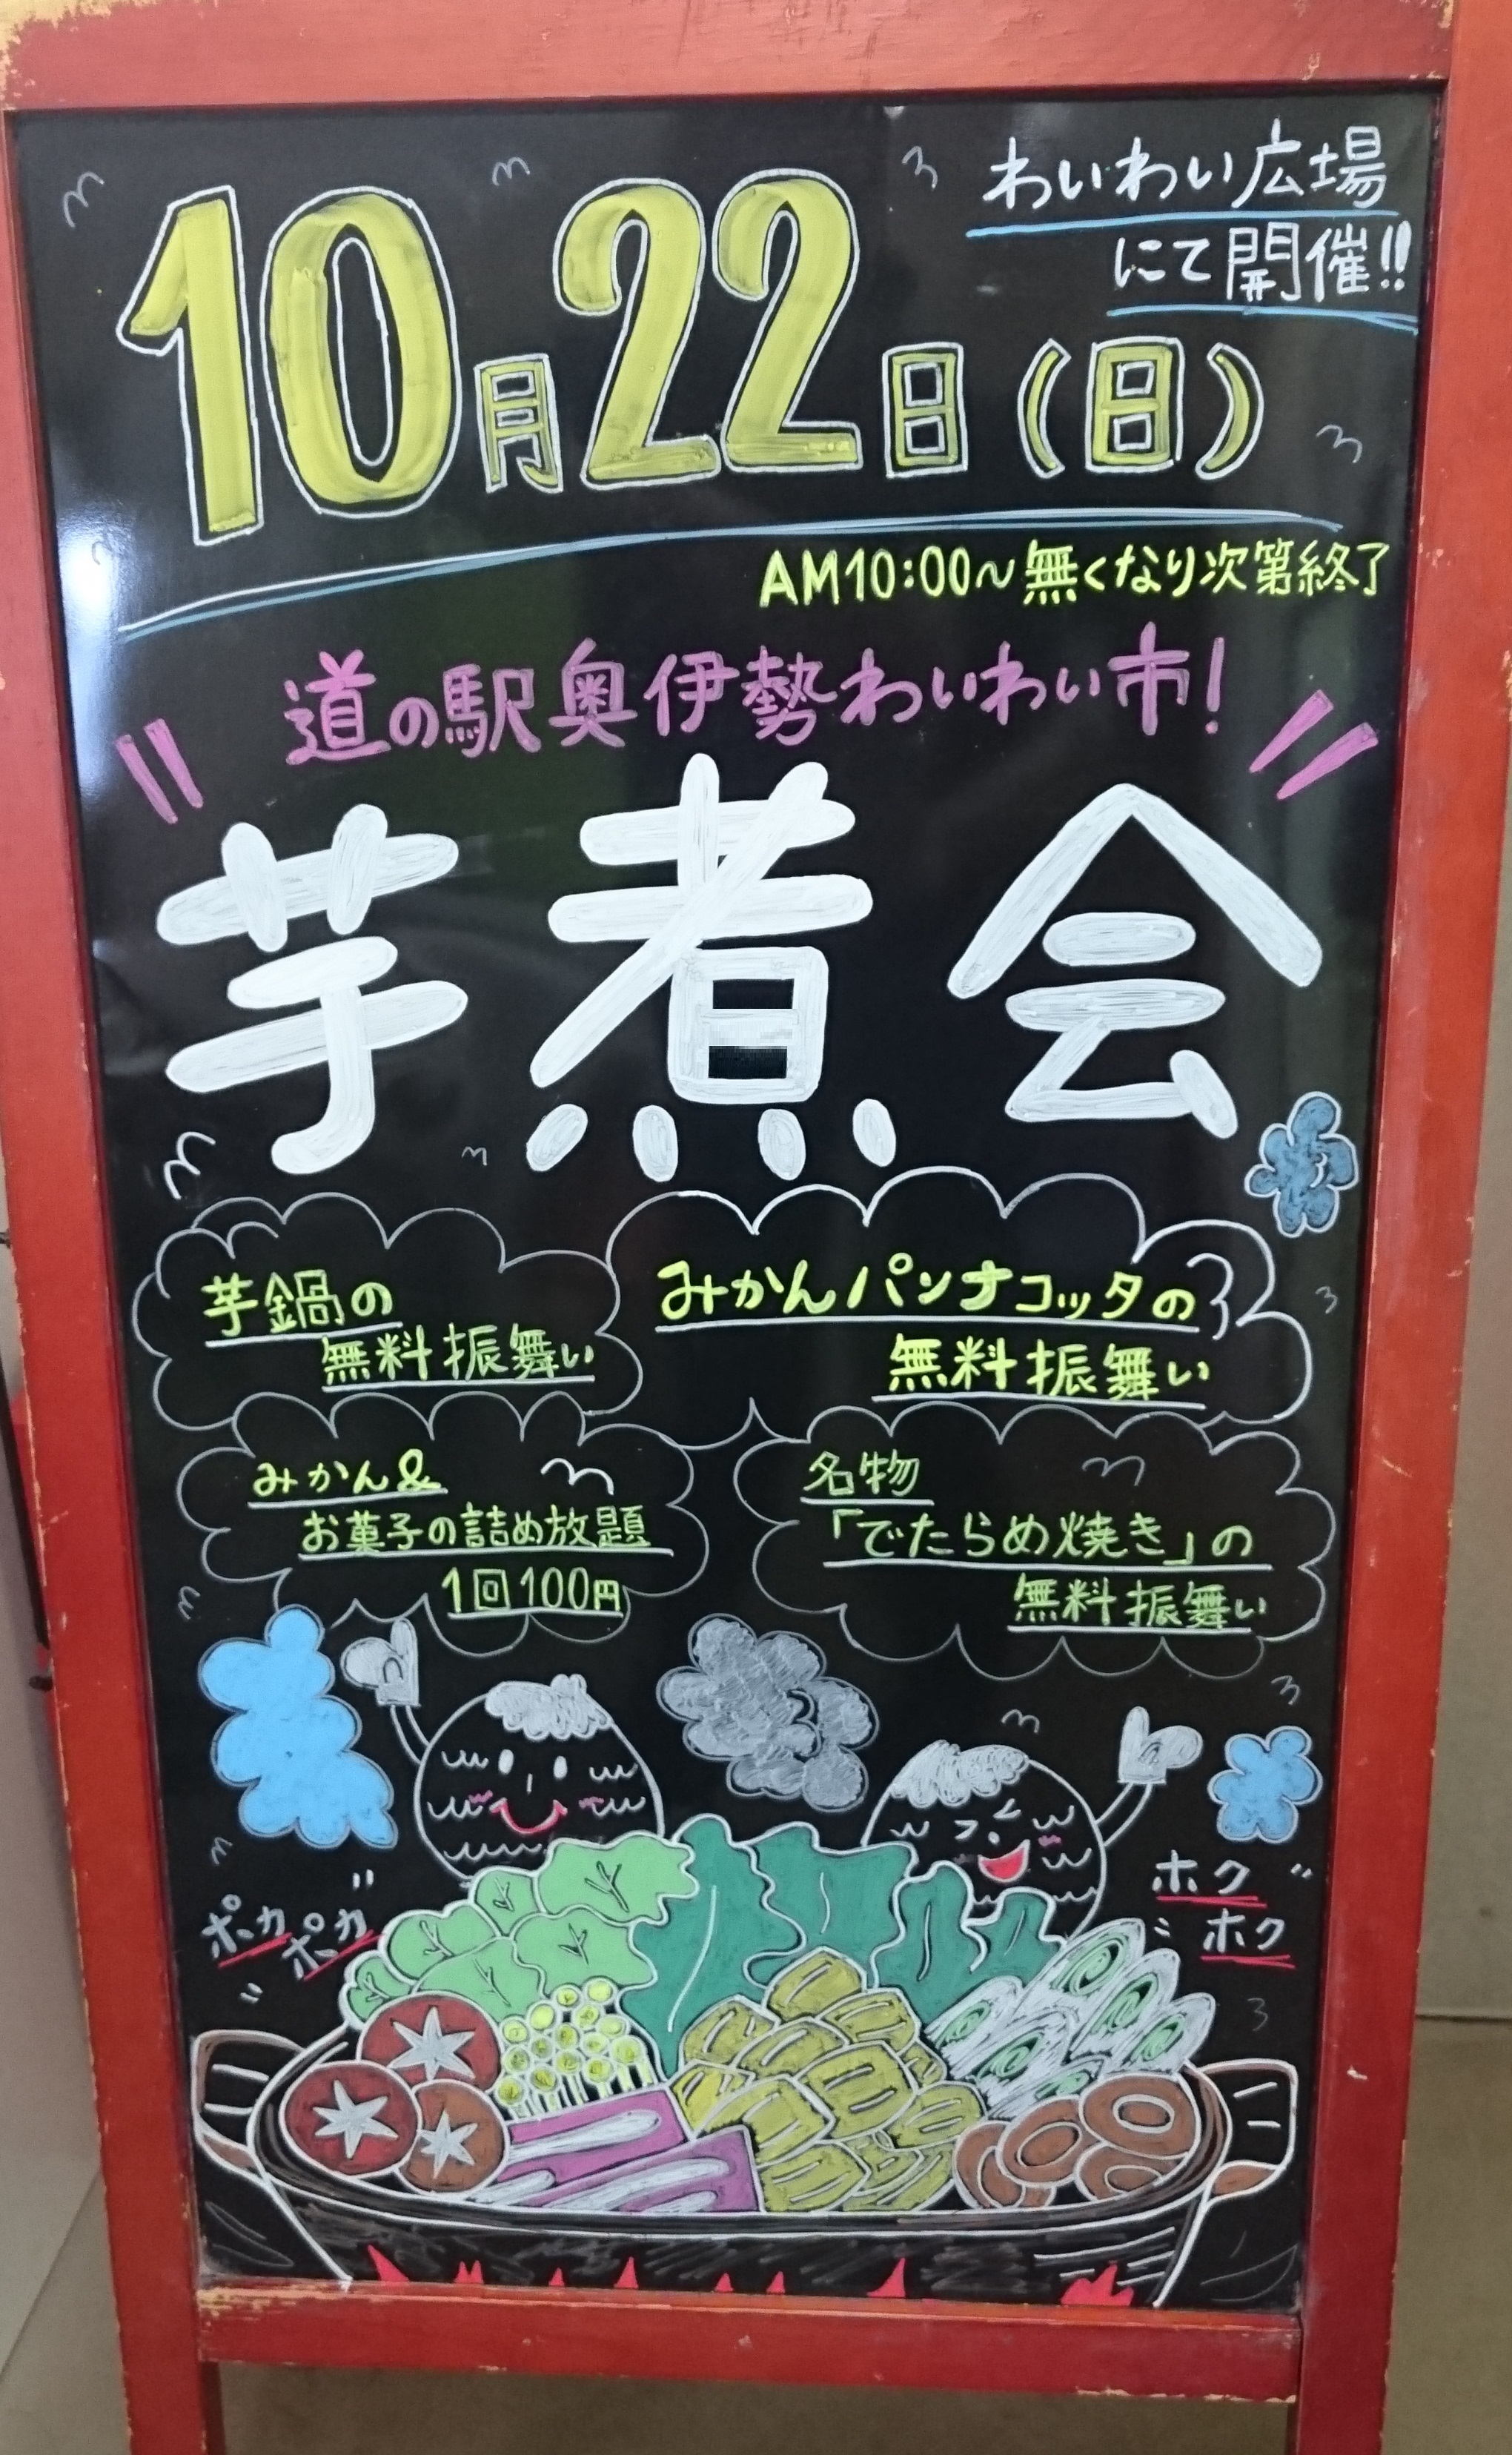 わいわい広場
にて開催!!
10月22日(日)
AM10:00〜無くなり次第終了
道の駅奥伊勢わいわい市!
芋煮会
芋鍋の
無料振舞い
みかんパンナコッタの
無料振舞い
みかん&
お菓子の詰め放題
1回100円
名物
「でたらめ焼き」の
無料振舞い
ポカ
ポカ
ホク
ホク